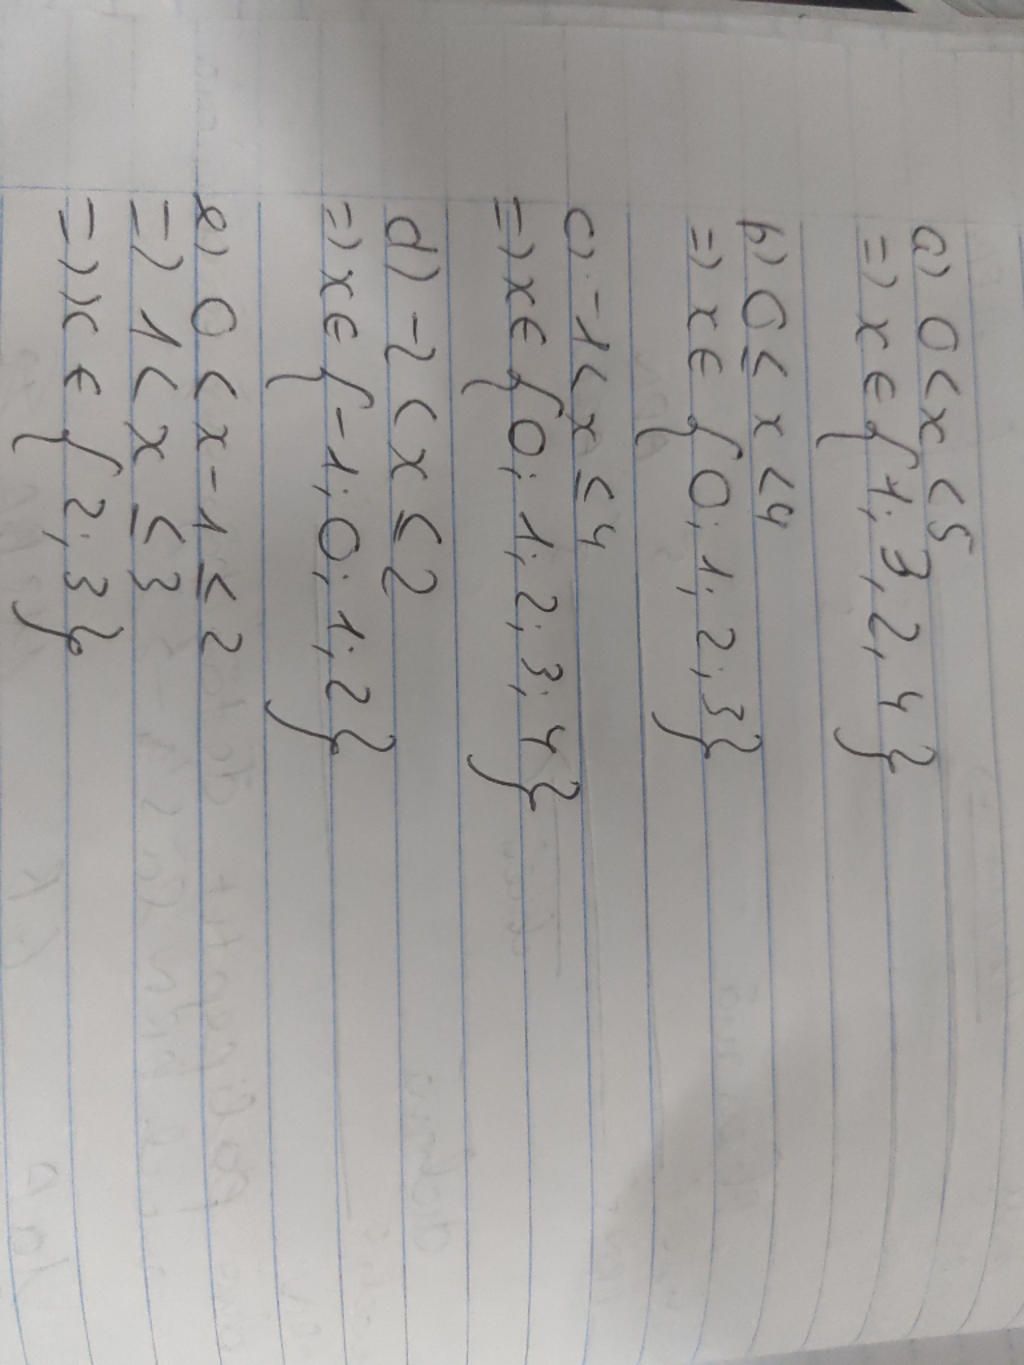 a) 0 < x < 5
=) x ∈ {1; 3, 2, 4}
b) 0 ≤ x < 4
=) x ∈ {0; 1; 2; 3}
c) -1 < x ≤ 4
=) x ∈ {0; 1; 2; 3; 4}
d) -2 < x ≤ 2
=) x ∈ {-1; 0; 1; 2}
e) 0 < x - 1 ≤ 2
=) 1 < x ≤ 3
=) x ∈ {2; 3}